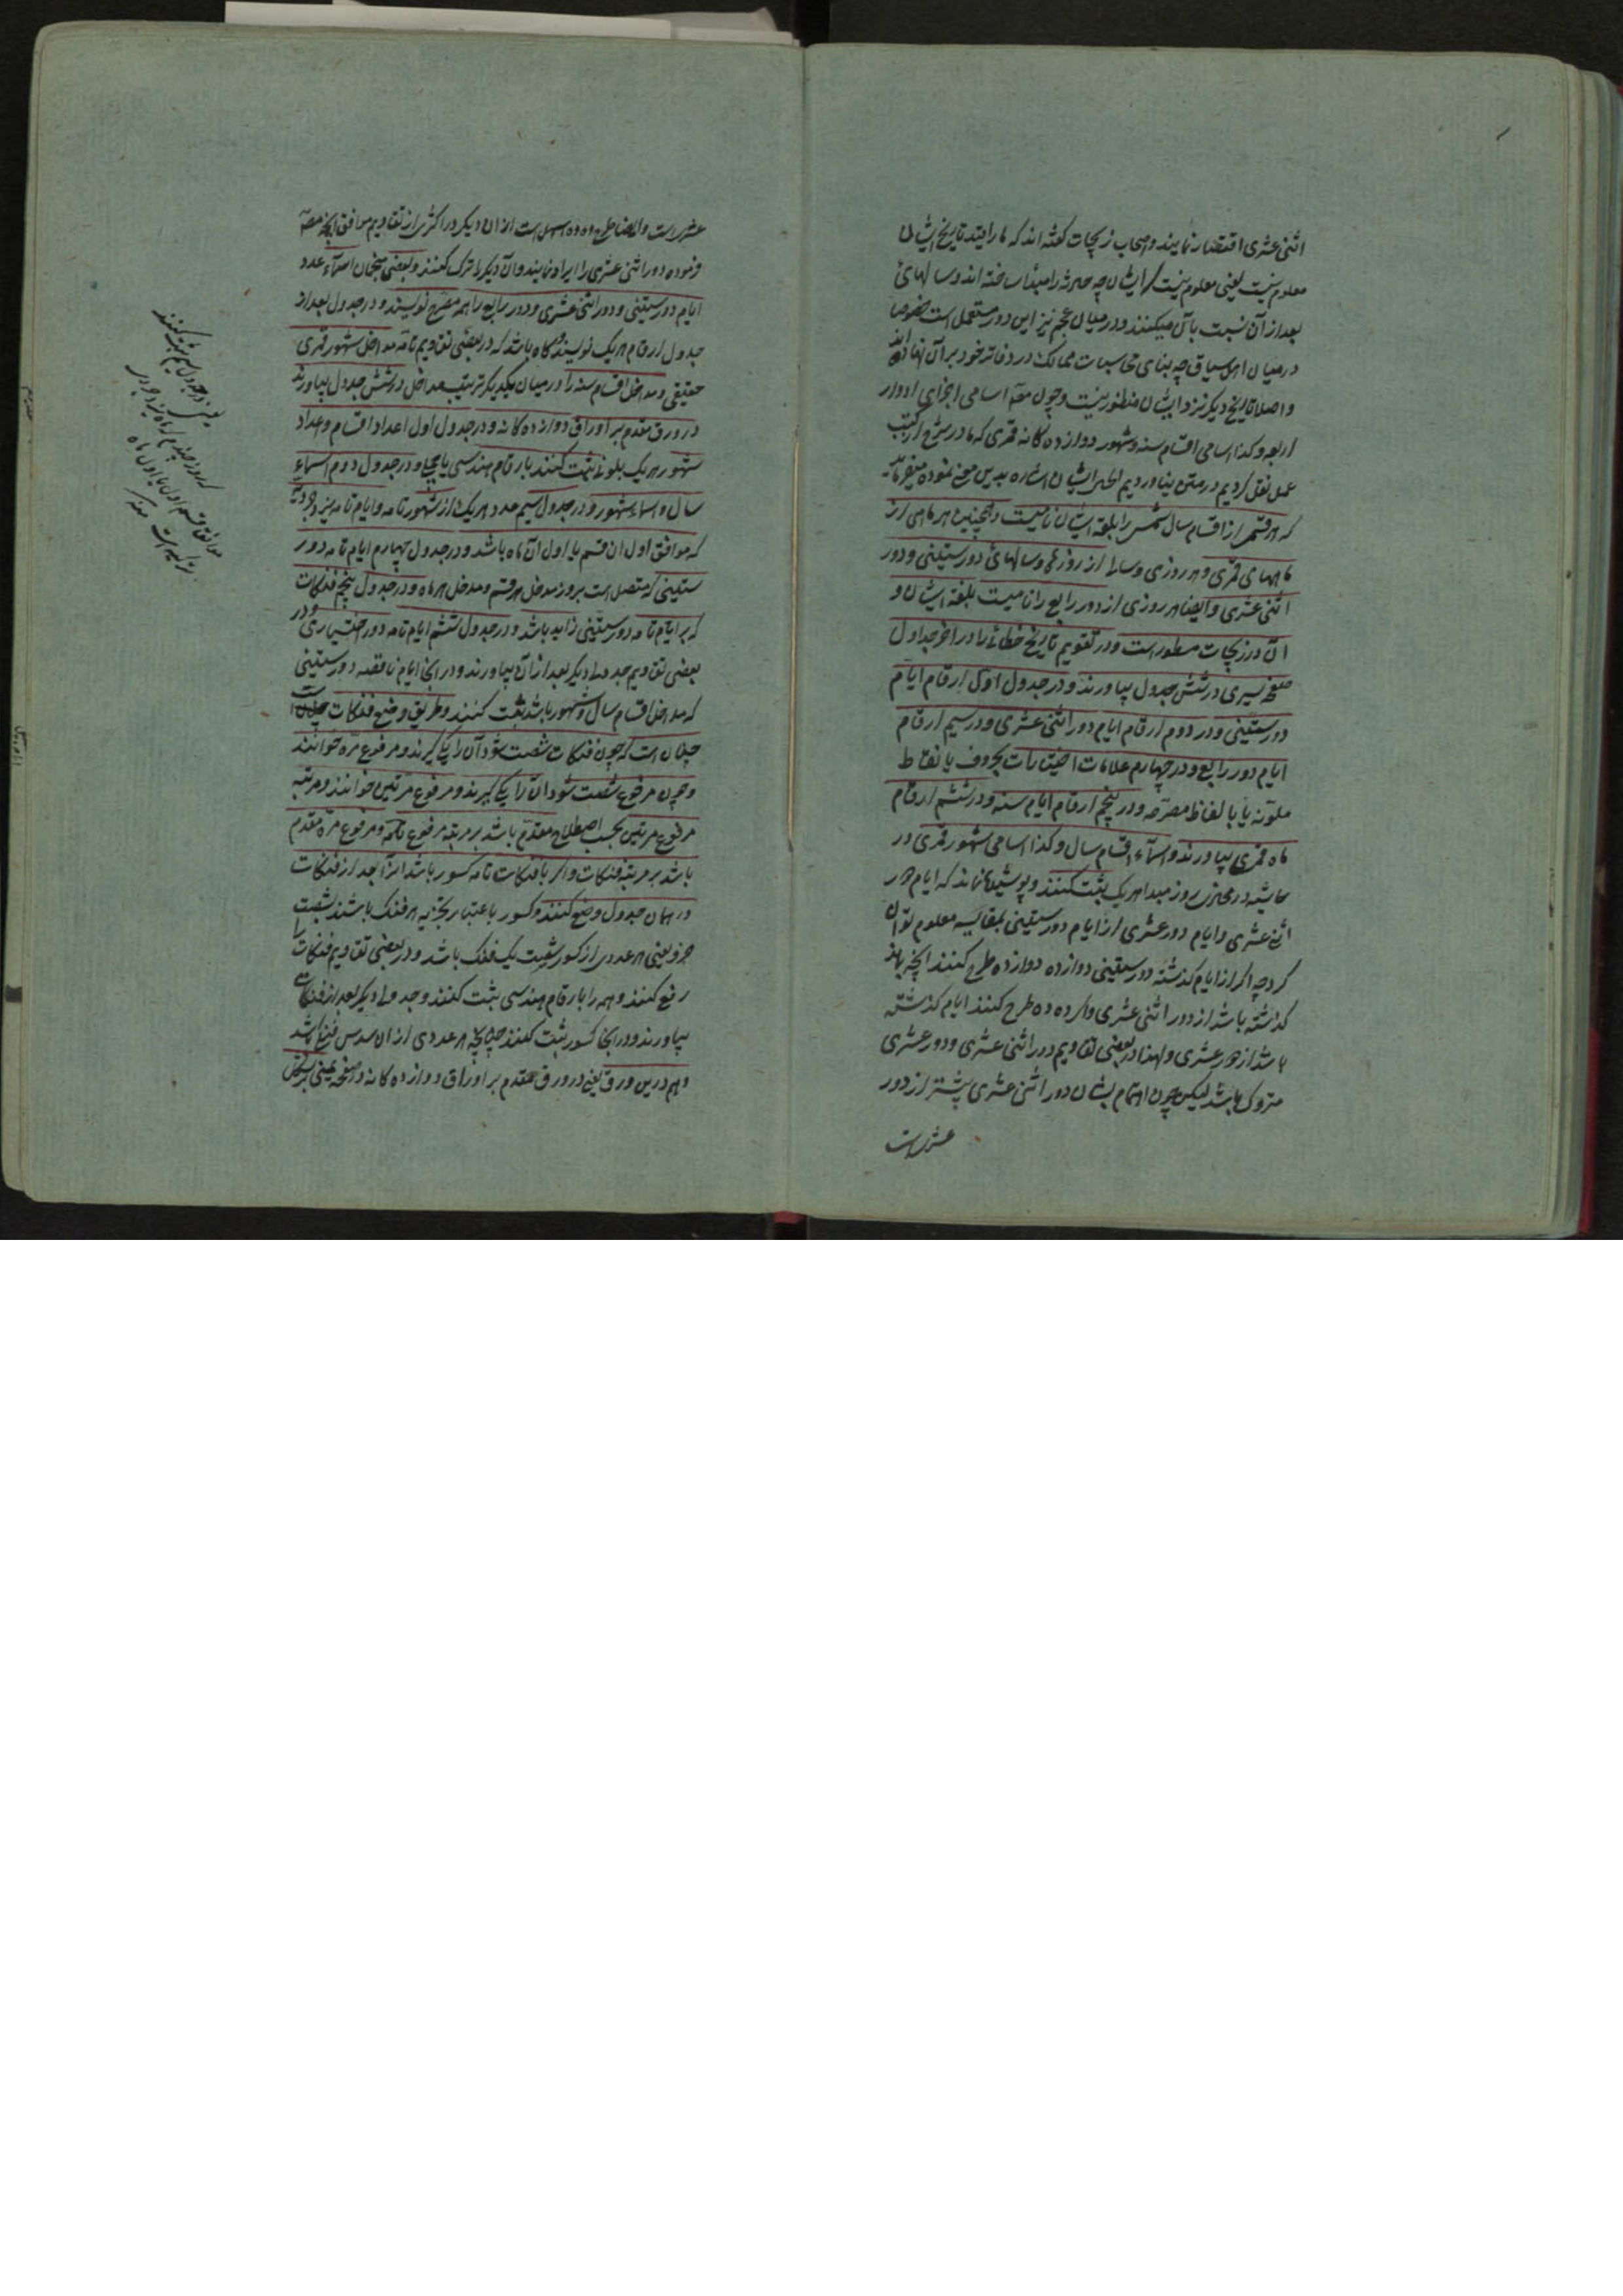 اثنی عشری اقتصار نمایند و اصحاب زیجات گفته اند که ما را مبدء تاریخ ایشان
معلوم نیست یعنی معلوم نیست که ایشان چه حادثه را مبدا ساخته اند و سالهای
بعد از آن نسبت بآن میکنند و در میان عجم نیز این دور مستعمل است خصوصا
در میان اهل سیاق چه بنای محاسبات ممالک در دفاتر خود بر آن نهاده اند
و اصلا تاریخ دیگر نزد ایشان منظور نیست و چون مصـ اسامی اجزای ادوار
اربعه و کذا اسامی اقسام سنه و شهور دوازده کانه قمری که ما در شرح از کتب
عمل نقل کردیم در متن نیاوردیم لاجرم ایشان اشاره بدین معنی نموده میفرماید
که هر قسمی از اقسام سال شمسی را بلغة ایشان نامیست و همچنین هر ماهی از
ماههای قمری و هر روزی و سالی از روزهای و سالهای دور ستینی و دور
اثنی عشری و ایضا هر روزی از دور رابع را نامیست بلغة ایشان و
آن در زیجات مسطور است و در تقویم تاریخ خطائی را در آخر جداول
صفحه یسری در شش جدول بیاورند و در جدول اول ارقام ایام
دور ستینی و در دوم ارقام ایام دور اثنی عشری و در سیم ارقام
ایام دور رابع و در چهارم علامات اختیارات بحروف یا نقاط
ملونه یا بالفاظ مصرحه و در پنجم ارقام ایام سنه و در ششم ارقام
ماه قمری بیاورند و اسماء اقسام سال و کذا اسامی شهور قمری در
حاشیه در محاذی روز مبدا هر یک ثبت کنند و پوشیده نماند که ایام دور
اثنی عشری و ایام دور عشری از ایام دور ستینی بمقایسه معلوم توان
کرد چه اگر از ایام گذشته دور ستینی دوازده دوازده طرح کنند آنچه بماند
گذشته باشد از دور اثنی عشری و اگر ده ده طرح کنند ایام گذشته
باشد از دور عشری و لهذا در بعضی تقاویم دور اثنی عشری و دور عشری
متروک باشد لیکن چون اهتمام ایشان بدور اثنی عشری بیشتر از دور
عشریست
عشریست و ایضا طرح ده ده اسهل است از آن دیگر در اکثری از تقاویم موافق آنچه مصـ
فرموده دور اثنی عشری را ایراد نمایند و آن دیگر را ترک کنند و بعضی منجمان اسماء عدد
ایام دور ستینی و دور اثنی عشری و دور رابع را هم مصرح نویسند و در جدول بعد از
جدول ارقام هر یک نویسند و گاه باشد که در بعضی تقاویم تامه مداخل شهور قمری
حقیقی و مداخل اقسام سنه را در میان یکدیگر بترتیب مداخل در شش جدول بیاورند
در ورق مقدم بر اوراق دوازده کانه و در جدول اول اعداد اقسام و اعداد
شهور هر یک بلونی ثبت کنند بارقام هندسی یا هجا و در جدول دوم اسماء
سال و اسماء شهور و در جدول سیم عدد هر یک از شهور تامه و ایام تامه یزدجردیه
که موافق اول آن قسم یا اول آن ماه باشد و در جدول چهارم ایام تامه دور
ستینی که متصل است بروز مدخل هر قسم و مدخل هر ماه و در جدول پنجم فنکات
که بر ایام تامه دور ستینی زاید باشد و در جدول ششم ایام تامه دور اختیاری و در
بعضی تقاویم جدولی دیگر بعد از آن بیاورند و در آنجا ایام ناقصه دور ستینی
که مدخل اقسام سال و شهور باشد ثبت کنند و طریق وضع فنکات
چنان است که چون فنکات شصت شود آن را یکی گیرند و مرفوع مرة خوانند
و چون مرفوع شصت شود آن را یکی گیرند و مرفوع مرتین خوانند و مرتبه
مرفوع مرتین بحسب اصطلاح مقدم باشد بر مرتبه مرفوع مرة و مرفوع مرة مقدم
باشد بر مرتبه فنکات و اگر با فنکات تامه کسور باشد آنرا بعد از فنکات
در همان جدول وضع کنند و کسور باعتبار تجزیه هر فنک باشند بشصت
جزو یعنی هر عددی از کسور شصت یک فنک باشد و در بعضی تقاویم فنکات را
رفع کنند و همه را بارقام هندسی ثبت کنند و جدولی دیگر بعد از فنکات
بیاورند و در آنجا کسور ثبت کنند چنانچه هر عددی از آن سدس فنکی باشد
و هم درین ورق یعنی در ورق مقدم بر اوراق دوازده کانه در صفحه یمینی بر شکل
یعنی در جدول سیم ثبت کنند
که روز چندم از ماه یزدجردی
موافق قسم اول یا اول ماه